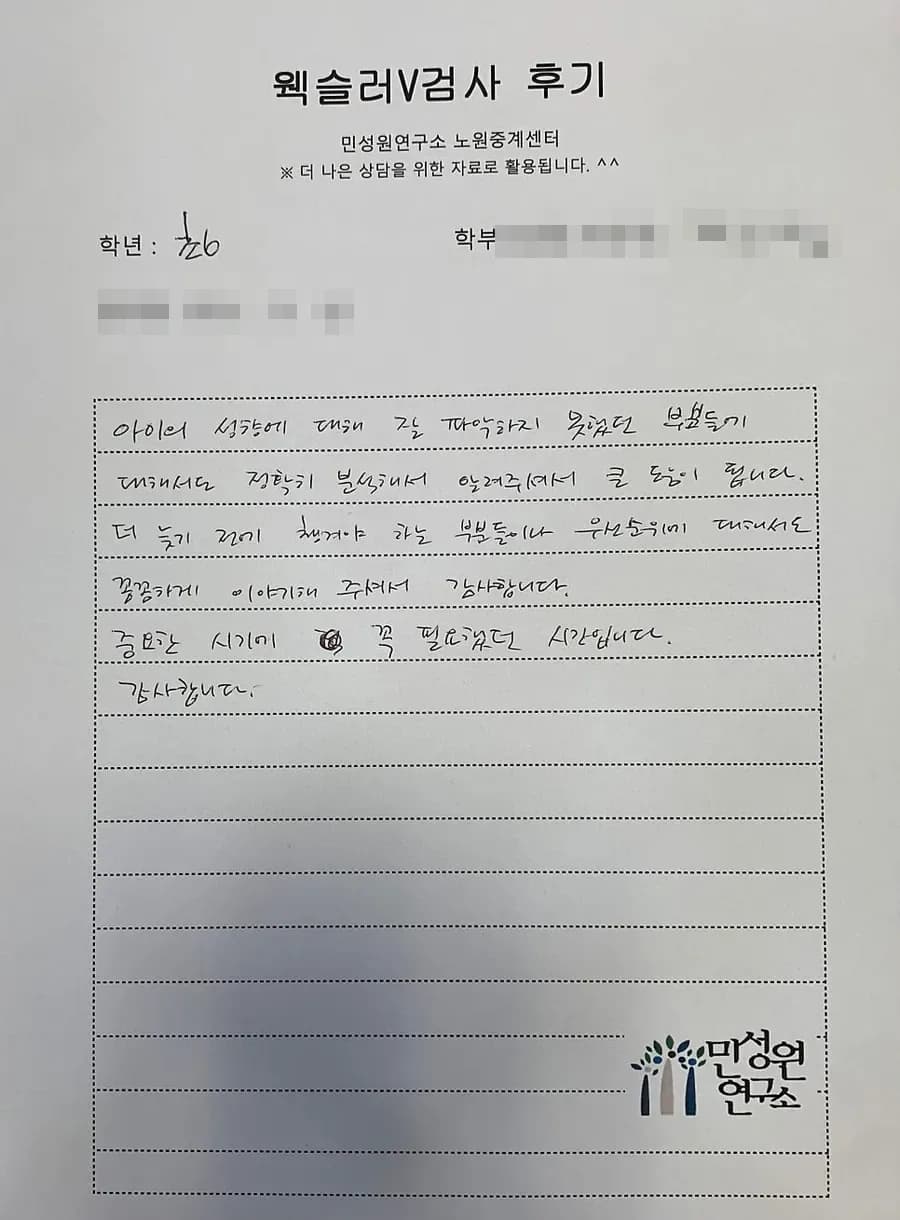 웩슬러V검사 후기
민성원연구소 노원중계센터
※ 더 나은 상담을 위한 자료로 활용됩니다. ^^
학년 : 초6
학부
아이의 성향에 대해 잘 파악하지 못했던 부분들에
대해서도 정확히 분석해서 알려주셔서 큰 도움이 됩니다.
더 늦기 전에 챙겨야 하는 부분들이나 우선순위에 대해서도
꼼꼼하게 이야기해 주셔서 감사합니다.
중요한 시기에 꼭 필요했던 시간입니다.
감사합니다.
민성원
연구소